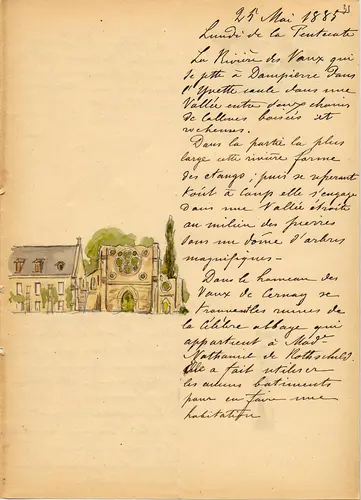 25 Mai 1885
Lundi de la Pentecote
La Rivière des Vaux qui
se jette à Dampierre dans
l'Yvette coule dans une
Vallée entre deux chaines
de Collines boisées et
rocheuses.
Dans la partie la plus
large cette rivière forme
des etangs, puis se reserrant
tout à coup elle s'engage
dans une Vallée étroite
au milieu des pierres
sous un dome d'arbres
magnifiques -
Dans le hameau des
Vaux de Cernay se
trouvent les ruines de
la Célèbre abbaye qui
appartient à Made
Nathaniel de Rothschild.
Elle a fait utiliser
les anciens batiments
pour en faire une
habitation